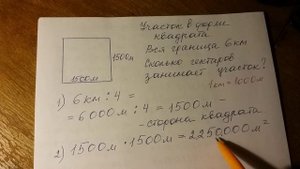 Участок в форме
квадрата
Вся граница 6 км
Сколько гектаров
занимает участок?
1500м
1500м
1 км = 1000 м
1) 6 км : 4 =
= 6000 м : 4 = 1500 м -
- сторона квадрата
2) 1500 м · 1500 м = 2250000 м²